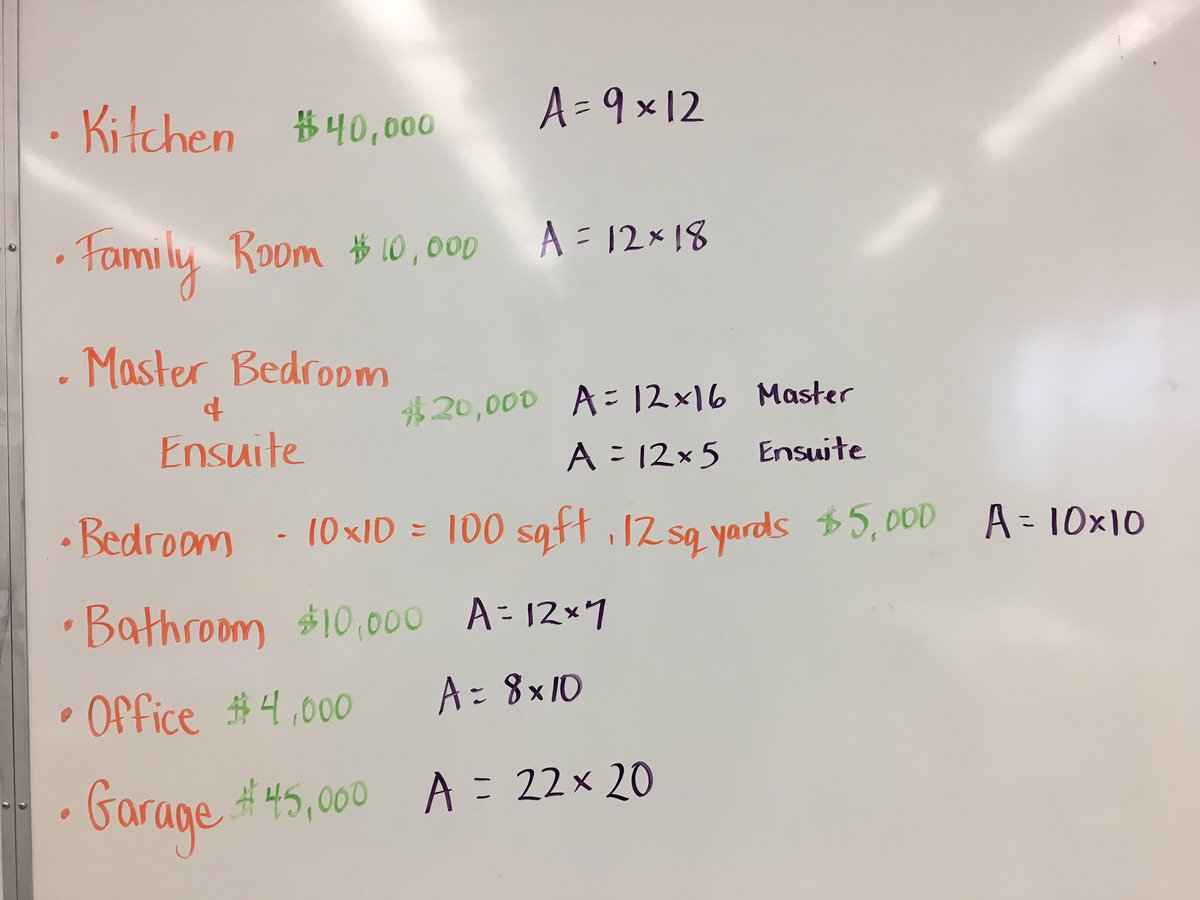 • Kitchen $40,000 A = 9 x 12
• Family Room $10,000 A = 12 x 18
• Master Bedroom
&
Ensuite
$20,000 A = 12 x 16 Master
A = 12 x 5 Ensuite
• Bedroom - 10x10 = 100 sqft, 12 sq yards $5,000 A = 10x10
• Bathroom $10,000 A = 12 x 7
• Office $4,000 A = 8 x 10
• Garage $45,000 A = 22 x 20